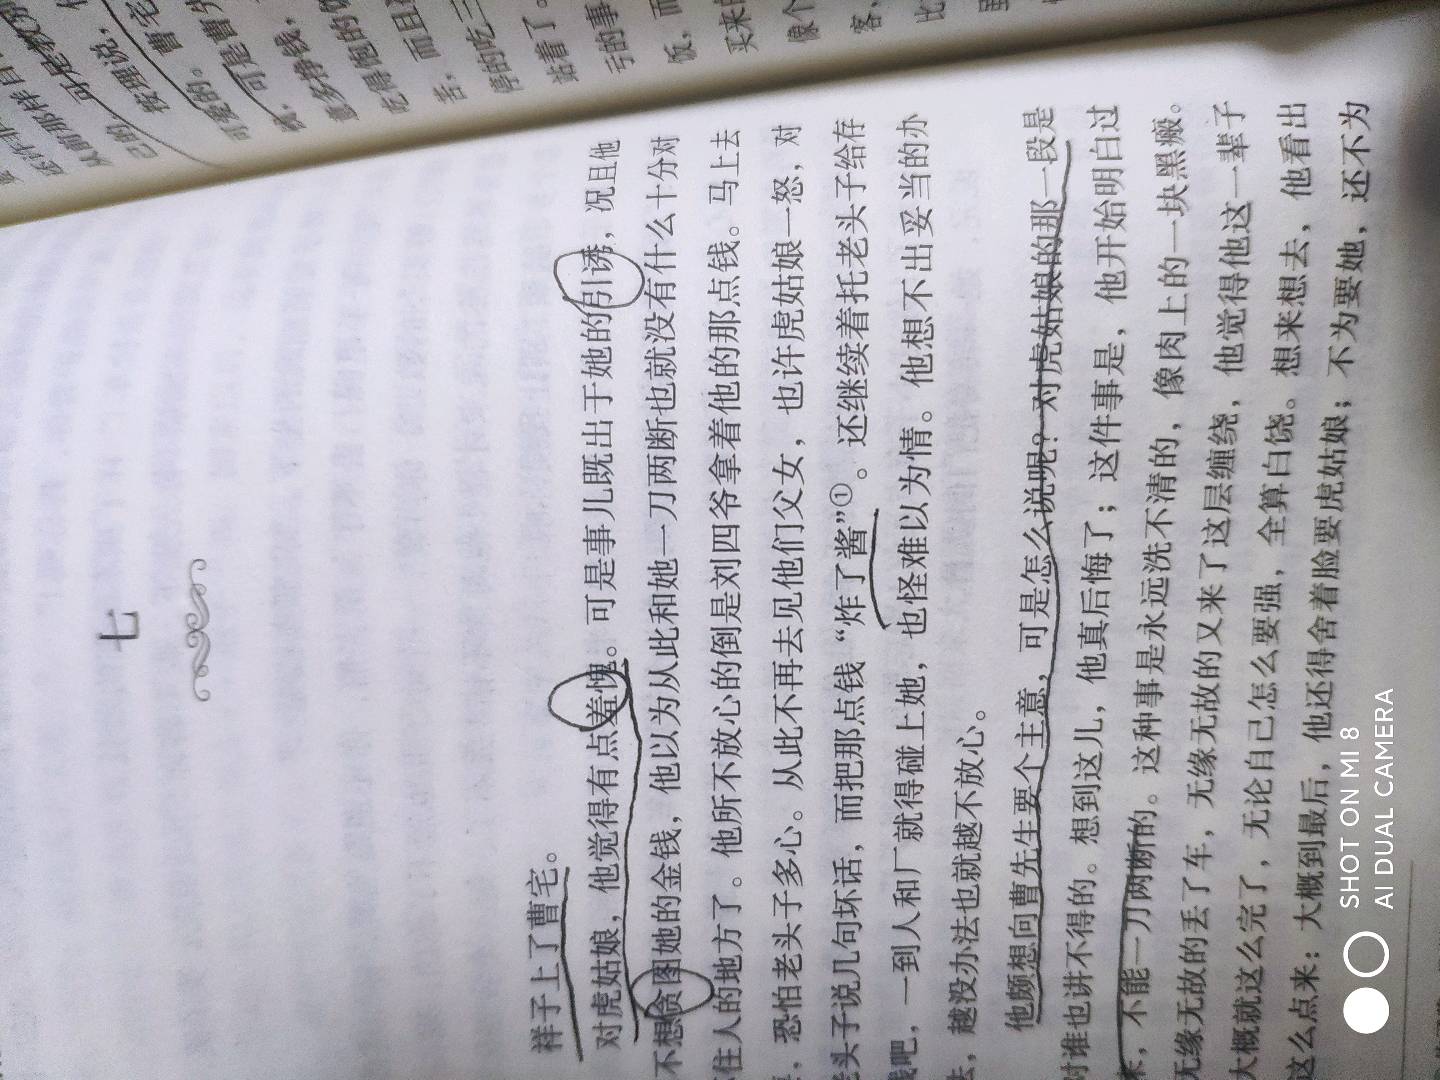 七
祥子上了曹宅。
对虎姑娘，他觉得有点羞愧。可是事儿既出于她的引诱，况且他
不想贪图她的金钱，他以为从此和她一刀两断也就没有什么十分对
不住人的地方了。他所不放心的倒是刘四爷拿着他的那点钱。马上去
，恐怕老头子多心。从此不再去见他们父女，也许虎姑娘一怒，对
老头子说几句坏话，而把那点钱“炸了酱”①。还继续着托老头子给存
钱吧，一到人和厂就得碰上她，也怪难以为情。他想不出妥当的办
法，越没办法也就越不放心。
他颇想向曹先生要个主意，可是怎么说呢？对虎姑娘的那一段是
对谁也讲不得的。想到这儿，他真后悔了；这件事是，他开始明白过
来，不能一刀两断的。这种事是永远洗不清的，像肉上的一块黑瘢。
无缘无故的丢了车，无缘无故的又来了这层缠绕，他觉得他这一辈子
大概就这么完了，无论自己怎么要强，全算白饶。想来想去，他看出
这么点来：大概到最后，他还得舍着脸要虎姑娘；不为要她，还不为
SHOT ON MI 8
AI DUAL CAMERA